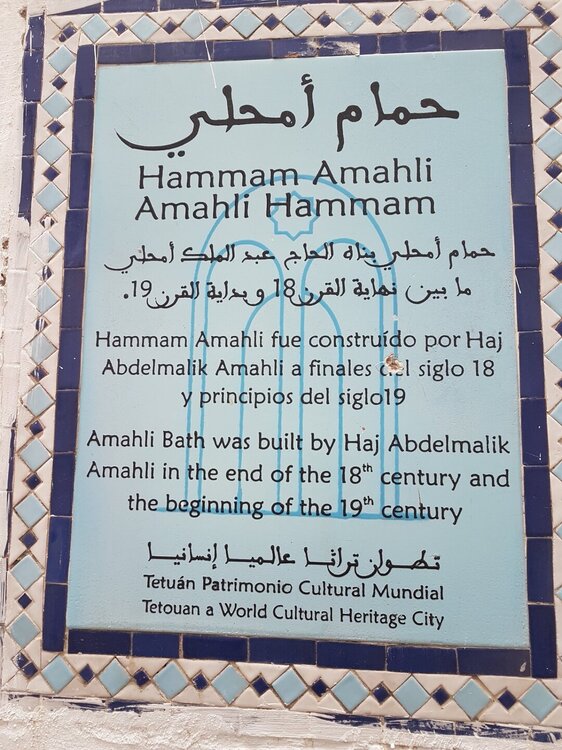 حمام أمحلي
Hammam Amahli
Amahli Hammam
حمام أمحلي بناه الحاج عبد الملك أمحلي
ما بين نهاية القرن18 و بداية القرن19.
Hammam Amahli fue construído por Haj
Abdelmalik Amahli a finales del siglo 18
y principios del siglo19
Amahli Bath was built by Haj Abdelmalik
Amahli in the end of the 18th century and
the beginning of the 19th century
تطوان تراثا عالميا إنسانيا
Tetuán Patrimonio Cultural Mundial
Tetouan a World Cultural Heritage City